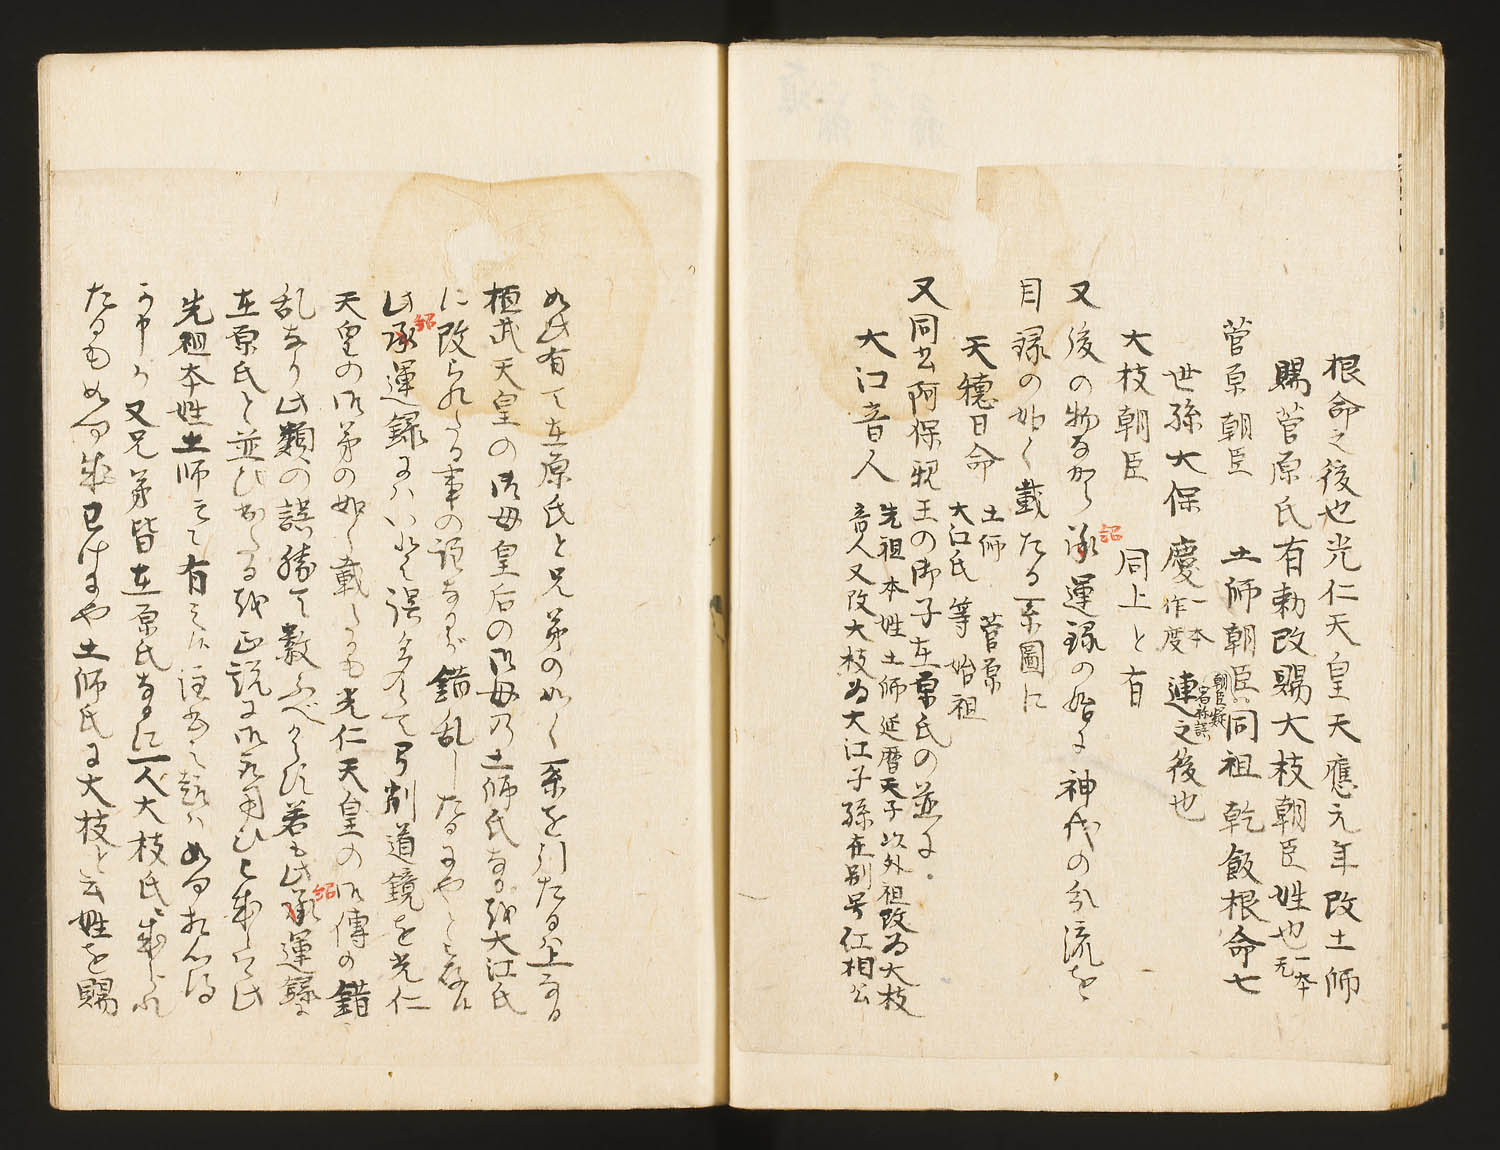 根命之後也光仁天皇天應元年改土師
賜菅原氏有勅改賜大枝朝臣姓也一本无
菅原朝臣 土師朝臣同祖乾飯根命七
世孫大保慶一本作度連朝臣疑宿祢誤之後也
大枝朝臣 同上と有
又後の物なから承運録の始に神代の分流を
紹
目録の如く載たる系圖に
天穂日命 土師 菅原
大江氏 等 始祖
又同書阿保親王の御子在原氏の並に
大江音人 先祖本姓土師延暦天子以外祖改為大枝
音人又改大枝為大江子孫在別号江相公
如此有て在原氏と兄弟の如く系を引たるは上なる
桓武天皇の御母皇后の御母乃土師氏なる故大江氏
に改られたる事の混ながら錯乱したるにやと
紹
此承運録には 誤多くて弓削道鏡を光仁
天皇の御弟の如く載たるも光仁天皇の御傳の錯
乱なり此類の誤勝て数ふべからず若も此承運録に
紹
在原氏と並び出たる故正説に
先祖本姓土師云々有 注
又兄弟皆在原氏なるに一人大枝氏に
土師氏に大枝と云姓を賜